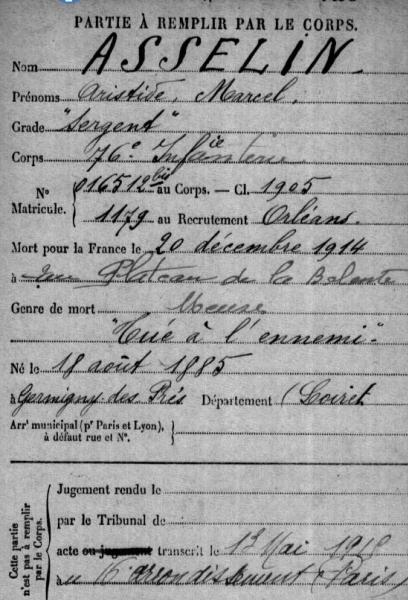 PARTIE À REMPLIR PAR LE CORPS.
Nom ASSELIN
Prénoms Aristide, Marcel.
Grade "Sergent"
Corps 76e Infanterie
No Matricule. 016512 bis au Corps. — Cl. 1905
1179 au Recrutement Orléans.
Mort pour la France le 20 décembre 1914
à Plateau de la
Genre de mort Meuse
"Tué à l'ennemi"
Né le 18 août 1885
à Germigny des Prés Département (Loiret
Arrt municipal (pr Paris et Lyon),
à défaut rue et No.
Cette partie
n'est pas à remplir
par le Corps.
Jugement rendu le
par le Tribunal de
acte ou jugement transcrit le 13 Mai
au arrondissement Paris